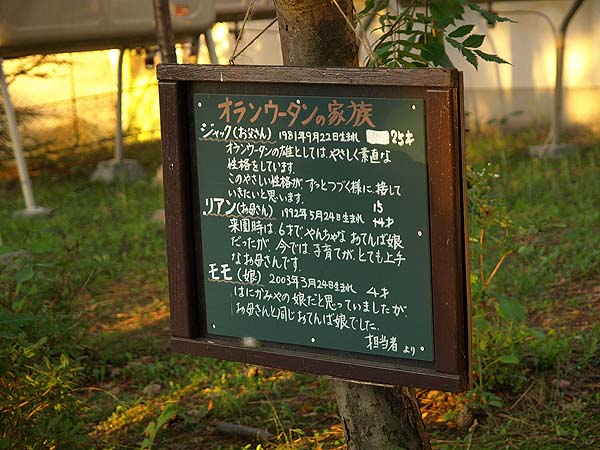 オランウータンの家族
ジャック(お父さん) 1981年9月22日生れ 25才
オランウータンの雄としては、やさしく素直な
性格をしています。
このやさしい性格が、ずっとつづく様に、接して
いきたいと思います。
リアン(お母さん) 1992年5月24日生まれ 15 14才
来園時は、6才でやんちゃな おてんば娘
だったが、今では、子育てが、とても上手
なお母さんです。
モモ(娘) 2003年3月24日生まれ 4才
はにかみやの娘だと思っていましたが、
お母さんと同じおてんば娘でした。
担当者 より